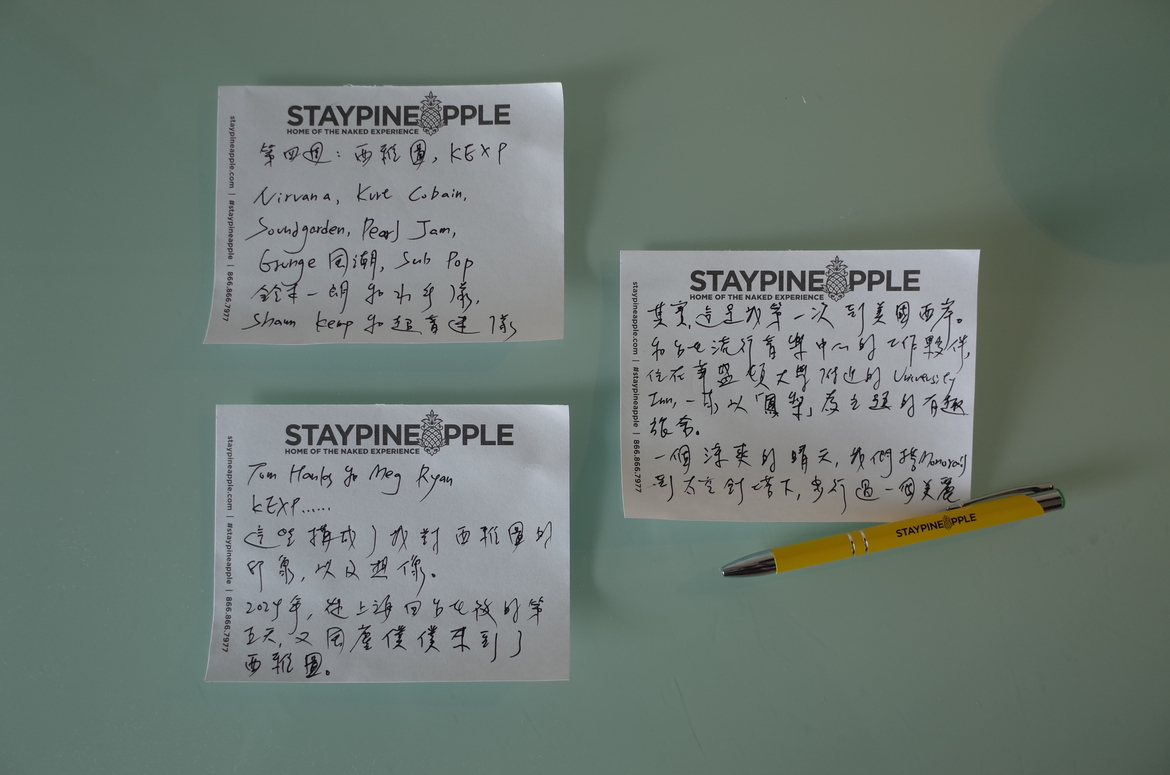 STAYPINEAPPLE
HOME OF THE NAKED EXPERIENCE
staypineapple.com | #staypineapple | 866.866.7977
第四週：西雅圖，KEXP
Nirvana, Kurt Cobain,
Soundgarden, Pearl Jam,
Grunge 風潮, Sub Pop
鈴木一朗和水手隊，
Shawn Kemp 和超音速隊
STAYPINEAPPLE
HOME OF THE NAKED EXPERIENCE
staypineapple.com | #staypineapple | 866.866.7977
Tom Hanks 和 Meg Ryan
KEXP......
這些構成了我對西雅圖的
印象，以及想像。
2024年，從上海回台北後的第
五天，又風塵僕僕來到了
西雅圖。
STAYPINEAPPLE
HOME OF THE NAKED EXPERIENCE
staypineapple.com | #staypineapple | 866.866.7977
其實，這是我第一次到美國西岸。
和台北流行音樂中心的工作夥伴，
住在華盛頓大學附近的 University
Inn, 一家以「鳳梨」為主題的有趣
旅舍。
一個涼爽的晴天，我們搭 Monorail
到太空針塔下，步行過一個美麗
STAYPINEAPPLE